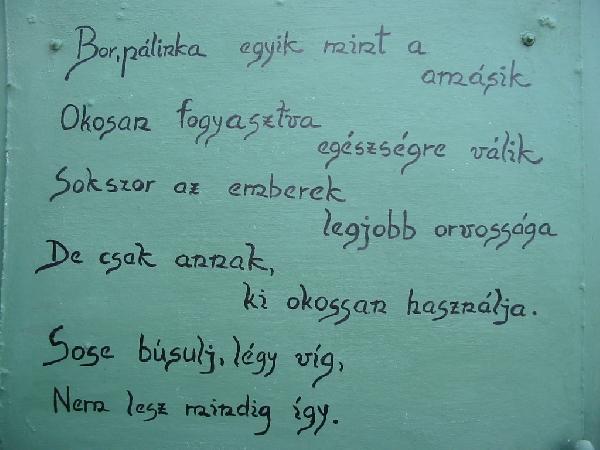 Bor, pálinka egyik mint a
amásik
Okosan fogyasztva
egészségre válik
Sokszor az emberek
legjobb orvossága
De csak annak,
ki okossan használja.
Sose búsulj, légy víg,
Nem lesz mindig így.